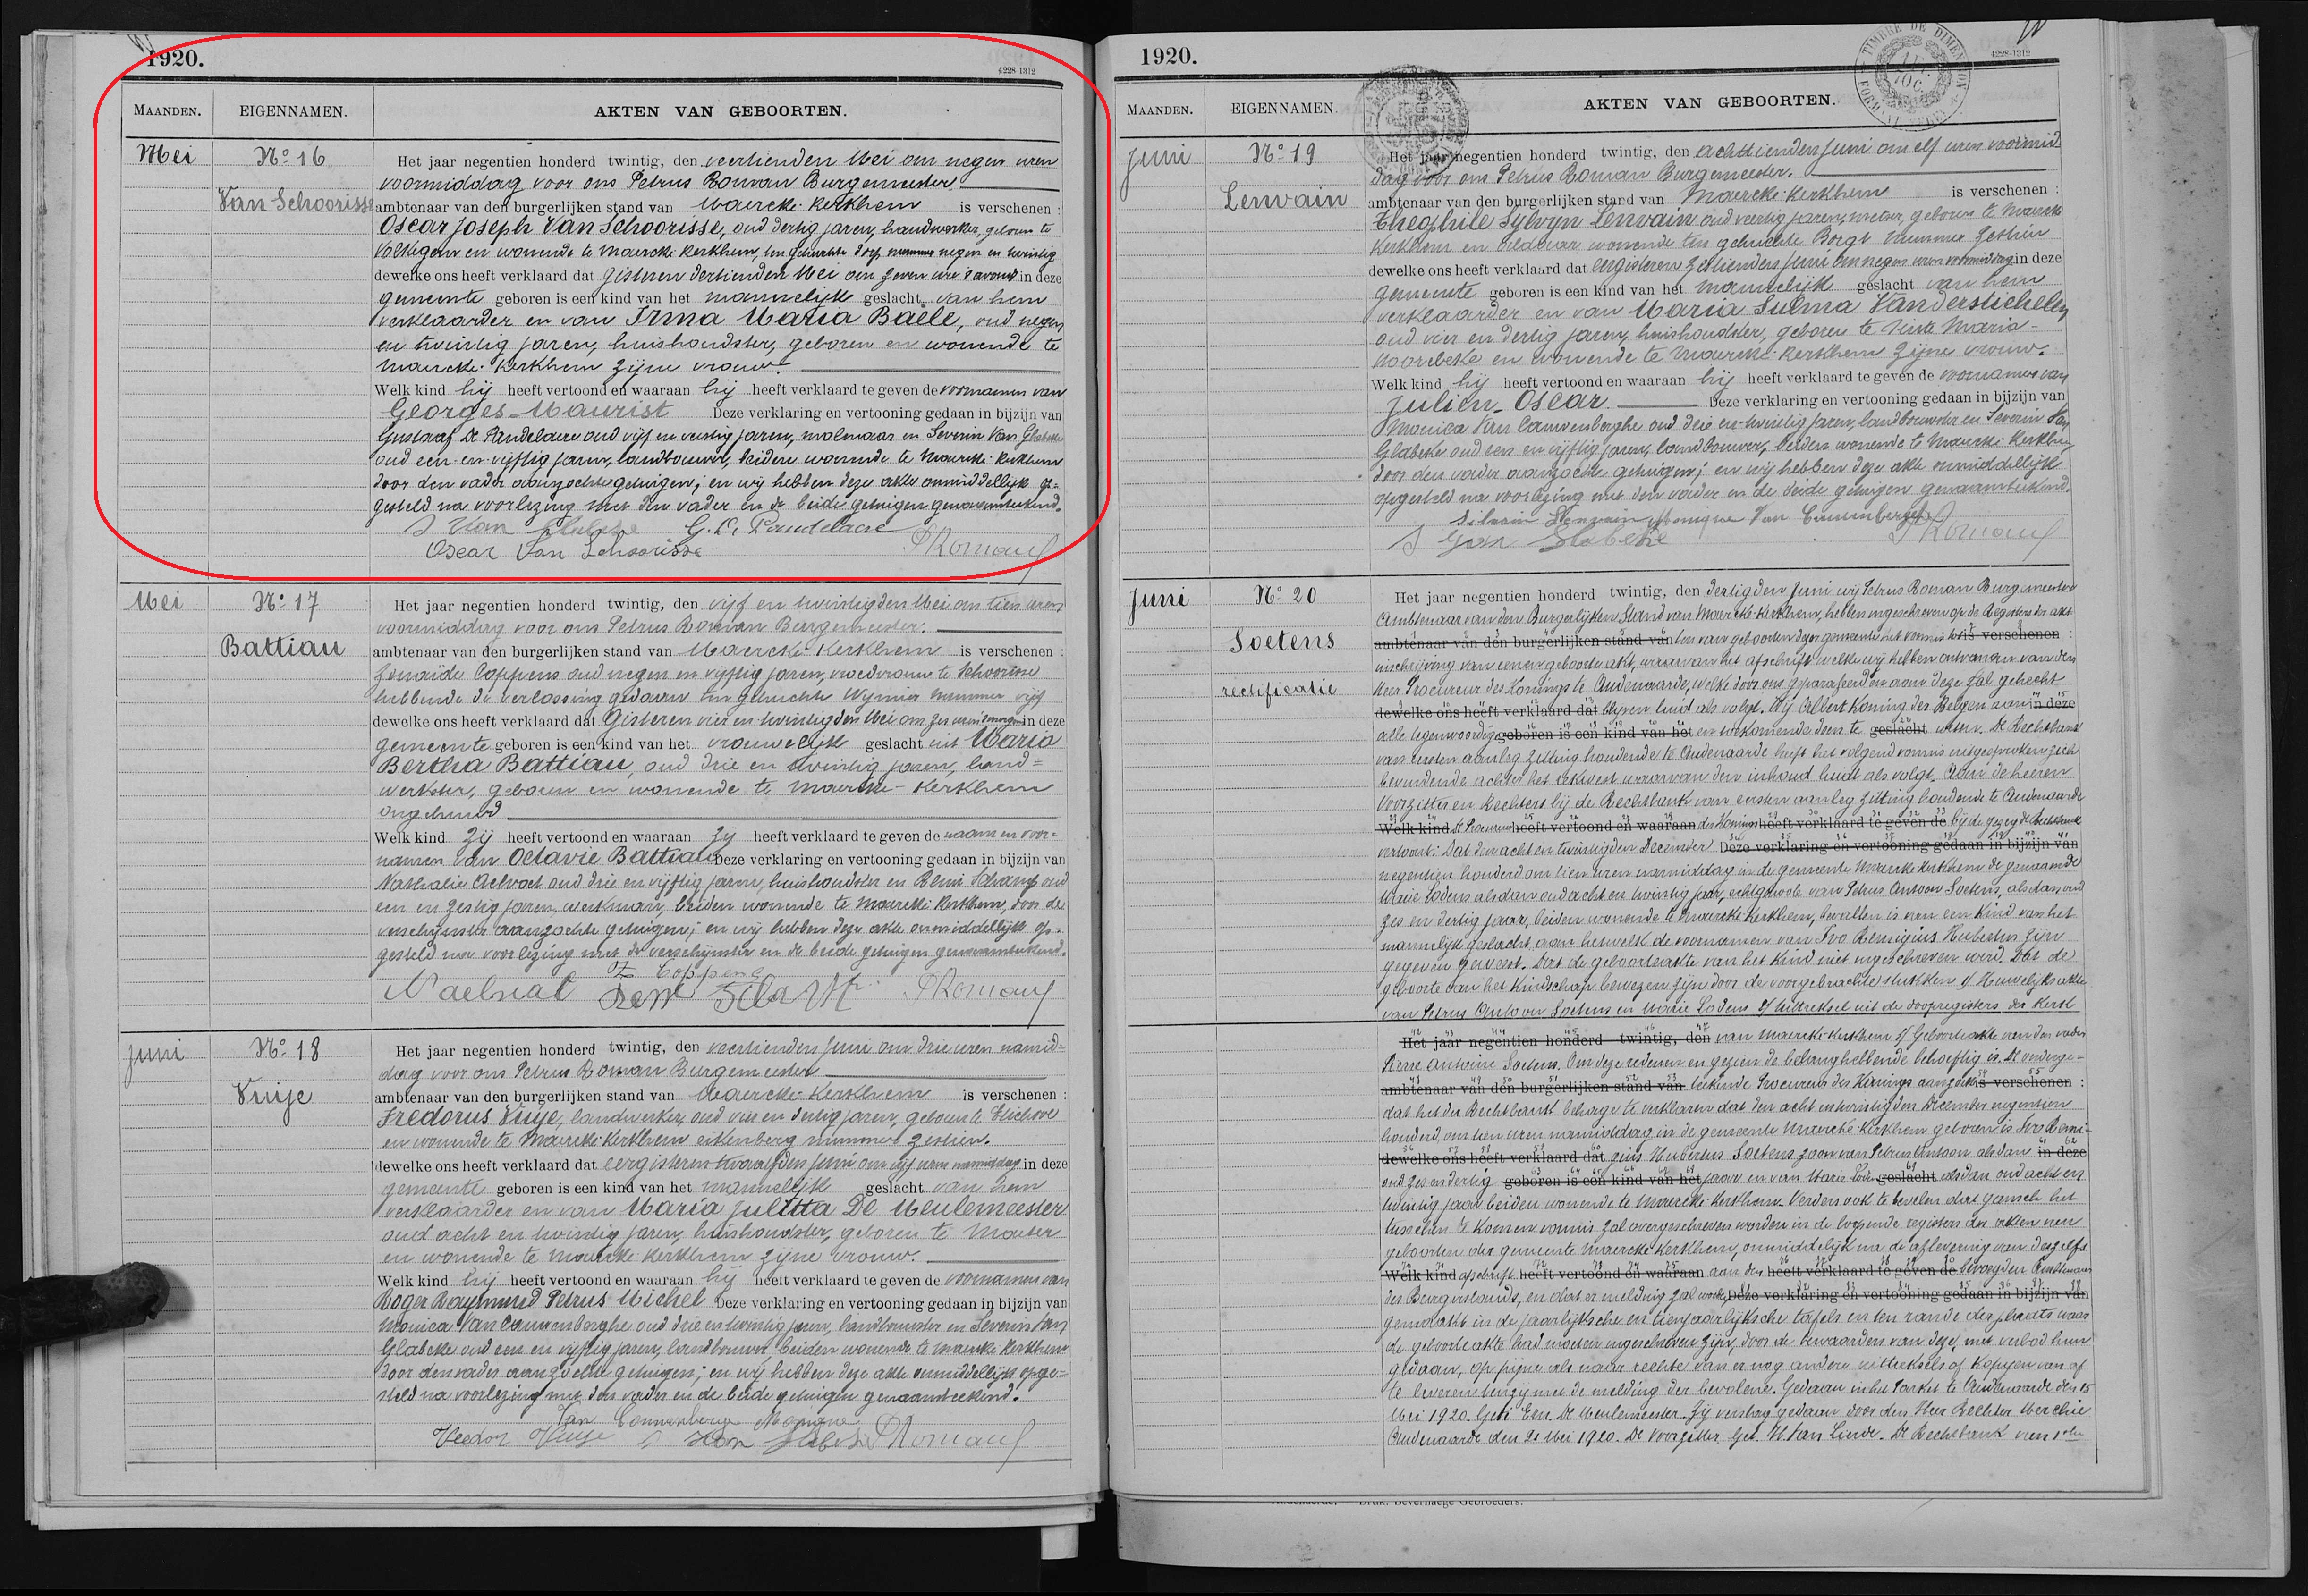 1920.
4228-1312
MAANDEN.
EIGENNAMEN.
AKTEN VAN GEBOORTEN.
Mei
No 16
Van Schoorisse
Het jaar negentien honderd twintig, den veertienden Mei om negen uren
voormiddag voor ons Petrus Roman Burgemeester
ambtenaar van den burgerlijken stand van Maercke-Kerkhem is verschenen :
Oscar Joseph Van Schoorisse, oud dertig jaren, handwerker, geboren te
Volkegem en wonende te Maercke-Kerkhem, ten gehuchte dorp nummer negen en twintig
dewelke ons heeft verklaard dat gisteren dertienden Mei om zeven ure 's avonds in deze
gemeente geboren is een kind van het mannelijk geslacht van hem
verklaarder en van Irma Maria Baele, oud negen
en twintig jaren, huishoudster, geboren en wonende te
Maercke-Kerkhem zijne vrouw.
Welk kind hij heeft vertoond en waaraan hij heeft verklaard te geven de voornamen van
Georges-Maurist Deze verklaring en vertooning gedaan in bijzijn van
Gustaaf De Pandelaere oud vijf en veertig jaren, molenaar en Severin Van Glabeke
oud een-en-vijftig jaren, landbouwer, beiden wonende te Maercke-Kerkhem
door den vader aanzochte getuigen; en wij hebben deze akte onmiddellijk op=
gesteld na voorlezing met den vader en de beide getuigen genaamteekend.
S Van Glabeke G. De Pandelaere
Oscar Van Schoorisse PRoman
Mei
No 17
Battiau
Het jaar negentien honderd twintig, den vijf en twintigden Mei om tien uren
voormiddag voor ons Petrus Roman Burgemeester.
ambtenaar van den burgerlijken stand van Maercke-Kerkhem is verschenen :
Zenaïde Coppens oud negen en vijftig jaren, vroedvrouw te Schoorisse
hebbende de verlossing gedaan ten gehuchte Wijmier nummer vijf
dewelke ons heeft verklaard dat Gisteren vier en twintigden Mei om zes uren 's morgens in deze
gemeente geboren is een kind van het vrouwelijk geslacht uit Maria
Bertha Battiau, oud drie en twintig jaren, hand=
werkster, geboren en wonende te Maercke-Kerkhem
ongehuwd
Welk kind zij heeft vertoond en waaraan zij heeft verklaard te geven de naam en voor=
namen van Octavie Battiau Deze verklaring en vertooning gedaan in bijzijn van
Nathalie Aelvoet oud drie en vijftig jaren, huishoudster en Remi Schamp oud
een en zestig jaren, werkman, beiden wonende te Maercke-Kerkhem, door de
verschijnster aanzochte getuigen; en wij hebben deze akte onmiddellijk op=
gesteld na voorlezing met de verschijnster en de beide getuigen genaamteekend.
Z Coppens
PRoman
Juni
No 18
Vuije
Het jaar negentien honderd twintig, den veertienden Juni om drie uren namid=
dag voor ons Petrus Roman Burgemeester
ambtenaar van den burgerlijken stand van Maercke-Kerkhem is verschenen :
Fredorus Vuije, landwerker, oud vier en dertig jaren, geboren te Etichove
en wonende te Maercke-Kerkhem eikenberg nummer zestien.
dewelke ons heeft verklaard dat eergisteren twaalfden Juni om vijf uren namiddag in deze
gemeente geboren is een kind van het mannelijk geslacht van hem
verklaarder en van Maria Julitta De Meulemeester
oud acht en twintig jaren, huishoudster, geboren te Mater
en wonende te Maercke-Kerkhem zijne vrouw.
Welk kind hij heeft vertoond en waaraan hij heeft verklaard te geven de voornamen van
Roger Raymond Petrus Michel Deze verklaring en vertooning gedaan in bijzijn van
Monica Van Cauwenberghe oud drie en twintig jaren, landbouwster en Severin Van
Glabeke oud een en vijftig jaren, landbouwer beiden wonende te Maercke Kerkhem
door den vader aanzochte getuigen; en wij hebben deze akte onmiddellijk opge=
steld na voorlezing met den vader en de beide getuigen genaamteekend.
Van Cauwenberghe Monique
Vuije S Van Glabeke PRoman
1920.
4228-1312
TIMBRE DE DIMENSION
MAANDEN.
EIGENNAMEN.
AKTEN VAN GEBOORTEN.
Juni
No 19
Lenvain
Het jaar negentien honderd twintig, den achttienden Juni om elf uren voormid
dag voor ons Petrus Roman Burgemeester.
ambtenaar van den burgerlijken stand van Maercke-Kerkhem is verschenen :
Theophile Sylvyn Lenvain oud veertig jaren, metser, geboren te Maercke
Kerkhem en aldaar wonende ten gehuchte Borgt nummer zestien
dewelke ons heeft verklaard dat eergisteren zestienden Juni om negen uren voormiddag in deze
gemeente geboren is een kind van het mannelijk geslacht van hem
verklaarder en van Maria Sulma Vanderstichelen
oud vier en dertig jaren, huishoudster, geboren te Sinte Maria-
Hoorebeke en wonende te Maercke-Kerkhem zijne vrouw.
Welk kind hij heeft vertoond en waaraan hij heeft verklaard te geven de voornamen van
Julien-Oscar. Deze verklaring en vertooning gedaan in bijzijn van
Monica Van Cauwenberghe oud drie en twintig jaren, landbouwster en Severin Van
Glabeke oud een en vijftig jaren, landbouwer, beiden wonende te Maercke-Kerkhem
door den vader aanzochte getuigen; en wij hebben deze akte onmiddellijk
opgesteld na voorlezing met den vader en de beide getuigen genaamteekend.
Silvain Lenvain Monique Van Cauwenberghe
S Van Glabeke PRoman
Juni
No 20
Soetens
rectificatie
Het jaar negentien honderd twintig, den dertigden Juni wij Petrus Roman Burgemeester
Ambtenaar van den Burgerlijken Stand van Maercke-Kerkhem, hebben ingeschreven op de Registers der akt
ambtenaar van den burgerlijken stand van ten van geboorten dezer gemeente het vonnis tot is verschenen :
inschrijving van eenen geboorte akt, waarvan het afschrift welke wij hebben ontvangen van den
Heer Procureur des Konings te Audenaarde, welke door ons geparafeerd en aan deze zal gehecht
dewelke ons heeft verklaard dat blijven luid als volgt. Wij Albert Koning der Belgen aan in deze
alle tegenwoordige geboren is een kind van het en toekomende doen te geslacht weten. De Rechtbank
van eersten aanleg zitting houdende te Audenaarde heeft het volgend vonnis uitgesproken zich
bevindende achter het rekwest waarvan den inhoud luidt als volgt. Aan de heeren
Voorzitter en Rechters bij de Rechtbank van eersten aanleg zitting houdende te Audenaarde
Welk kind De Procureur heeft vertoond en waaraan des Konings heeft verklaard te geven de bij de gezegde Rechtbank
vertoont: Dat den acht en twintigden December Deze verklaring en vertooning gedaan in bijzijn van
negentien honderd om tien uren namiddag in de gemeente Maercke Kerkhem de genaamde
Marie Lodens alsdan oud acht en twintig jaar, echtgenoote van Petrus Antoon Soetens, alsdan oud
zes en dertig jaar, beiden wonende te Maercke Kerkhem, bevallen is van een kind van het
mannelijk geslacht, aan hetwelk de voornamen van Ivo Remigius Hubertus zijn
gegeven geweest. Dat de geboorteakte van het kind niet ingeschreven werd. Dat de
geboorte van het kindschap bewezen zijn door de voorgebrachte stukken 1/ Huwelijksakte
van Petrus Antoon Soetens en Marie Lodens 2/ Uittreksel uit de doopregisters der Kerk
Het jaar negentien honderd twintig, den van Maercke-Kerkhem 3/ Geboorteakte van den vader
Pierre Antoine Soetens. Om deze redenen en gezien de belanghebbende behoeftig is. De onderge=
ambtenaar van den burgerlijken stand van teekende Procureur des Konings aanzoekt is verschenen :
dat het der Rechtbank behage te verklaren dat den acht en twintigden December negentien
honderd, om tien uren namiddag in de gemeente Maercke-Kerkhem geboren is Ivo Remi-
dewelke ons heeft verklaard dat gius Hubertus Soetens zoon van Petrus Antoon alsdan in deze
oud zes en dertig geboren is een kind van het jaar en van Marie Lodens geslacht alsdan oud acht en
twintig jaar beiden wonende te Maercke-Kerkhem. Verders ook te bevelen dat gansch het
tusschen te komen vonnis zal overgeschreven worden in de loopende registers der akten van
geboorten der gemeente Maercke Kerkhem, onmiddelijk na de aflevering van deszelfs
Welk kind afschrift heeft vertoond en waaraan aan den heeft verklaard te geven de bevoegden Ambtenaar
des Burgerstands, en dat er melding zal worden Deze verklaring en vertooning gedaan in bijzijn van
gemaakt in de jaarlijksche en tienjaarlijksche tafels en ten rande der plaats waar
de geboorteakte had moeten ingeschreven zijn, door de bewaarders van deze, met verbod hun
gedaan, op pijne als naar rechte van er nog andere uittreksels of kopijen van af
te leveren tenzij met de melding der bevolene. Gedaan in het Parket te Audenaarde den 15
Mei 1920. Get. Ern. De Meulemeester. Zij verslag gedaan door den Heer Rechter Merchie
Audenaarde den 21 Mei 1920. De Voorzitter Get. H. Van Linde. De Rechtbank van 1sten
Audenaerde. Druk. Bevernaege Gebroeders.